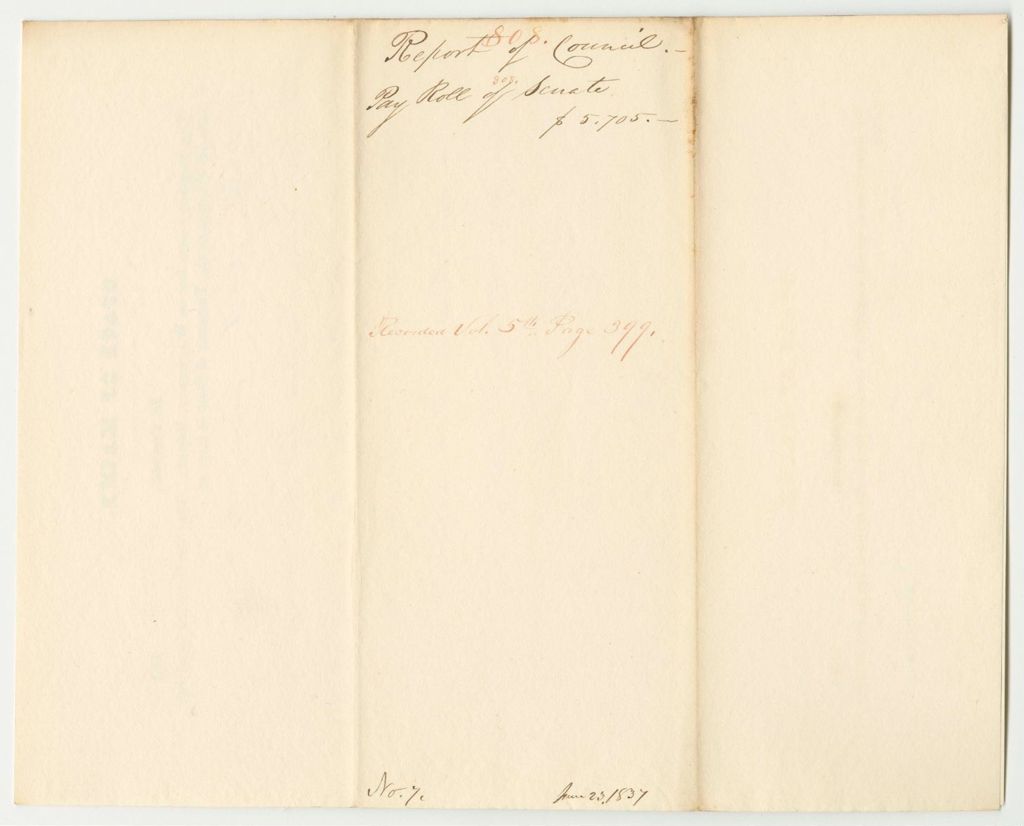 808.
Report of Council.—
308.
Pay Roll of Senate
$ 5.705.—
Recorded Vol. 5th Page 399.
No. 7. June 23, 1837